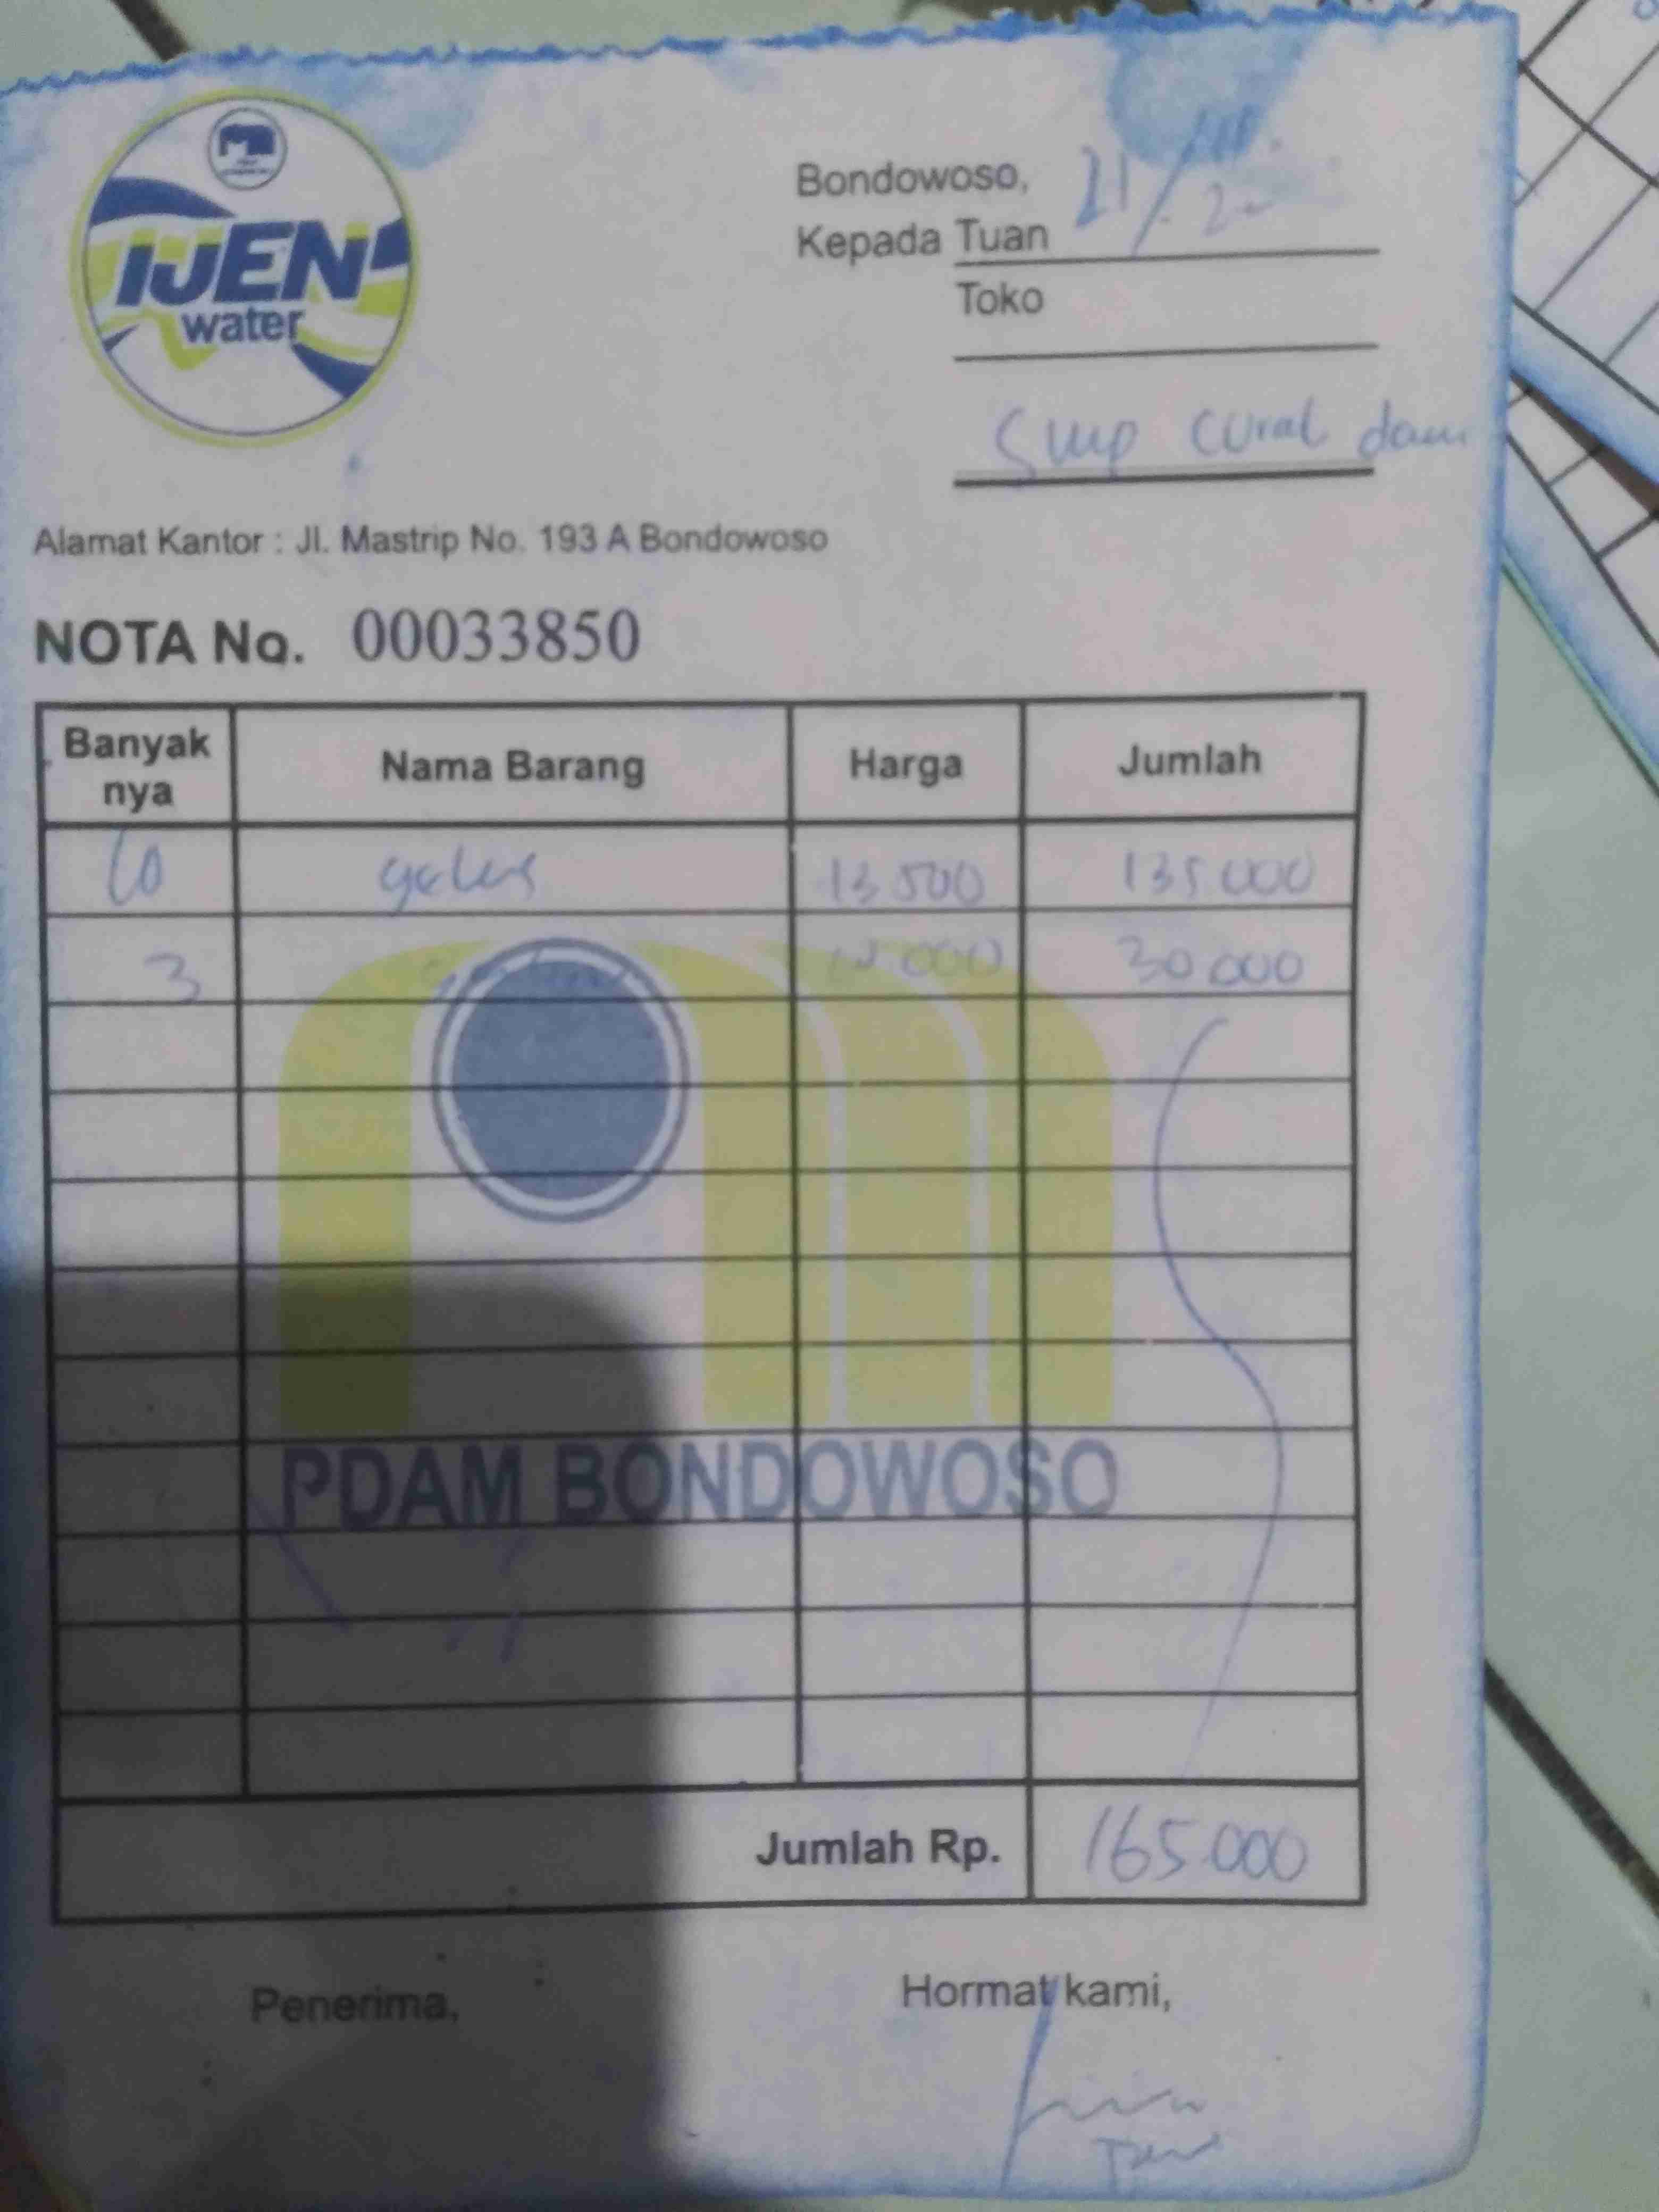 IJEN
water
Bondowoso, 21/
Kepada Tuan
Toko
Smp Curah dami
Alamat Kantor : Jl. Mastrip No. 193 A Bondowoso
NOTA No. 00033850
Banyak nya Nama Barang Harga Jumlah
10 galus 13 500 135 000
3 10 000 30 000
PDAM BONDOWOSO
Jumlah Rp. 165.000
Penerima, Hormat kami,